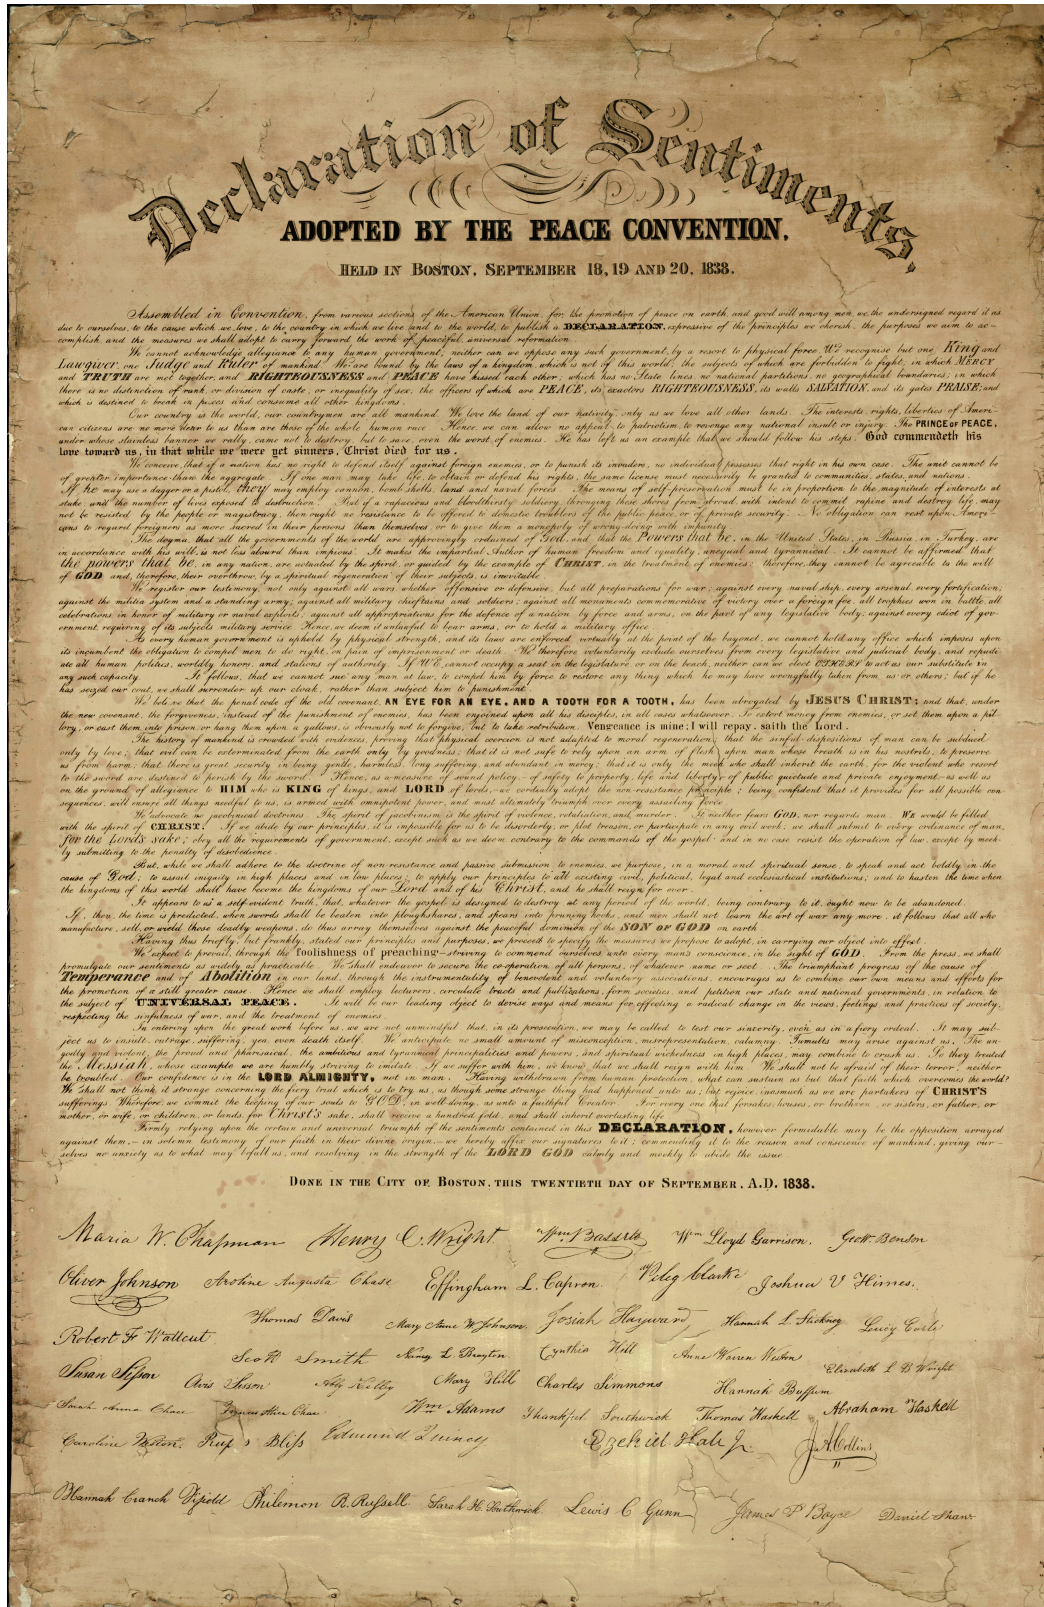 Declaration of Sentiments,
ADOPTED BY THE PEACE CONVENTION,
HELD IN BOSTON, SEPTEMBER 18, 19 AND 20, 1838.
Assembled in Convention, from various sections of the American Union, for the promotion of peace on earth, and good will among men, we, the undersigned regard it as
due to ourselves, to the cause which we love, to the country in which we live and to the world, to publish a DECLARATION, expressive of the principles we cherish, the purposes we aim to ac-
complish, and the measures we shall adopt to carry forward the work of peaceful, universal reformation.
We cannot acknowledge allegiance to any human government; neither can we oppose any such government, by a resort to physical force. We recognise but one King and
Lawgiver, one Judge and Ruler of mankind. We are bound by the laws of a kingdom which is not of this world; the subjects of which are forbidden to fight; in which MERCY
and TRUTH are met together, and RIGHTEOUSNESS and PEACE have kissed each other; which has no State lines, no national partitions, no geographical boundaries; in which
there is no distinction of rank, or division of caste, or inequality of sex; the officers of which are PEACE, its exactors RIGHTEOUSNESS, its walls SALVATION, and its gates PRAISE; and
which is destined to break in pieces and consume all other kingdoms.
Our country is the world, our countrymen are all mankind. We love the land of our nativity, only as we love all other lands. The interests, rights, liberties of Ameri-
can citizens are no more dear to us than are those of the whole human race. Hence we can allow no appeal to patriotism, to revenge any national insult or injury. The PRINCE OF PEACE,
under whose stainless banner we rally, came not to destroy, but to save, even the worst of enemies. He has left us an example, that we should follow his steps. God commendeth his
love toward us, in that while we were yet sinners, Christ died for us.
We conceive, that if a nation has no right to defend itself against foreign enemies, or to punish its invaders, no individual possesses that right in his own case. The unit cannot be
of greater importance than the aggregate. If one man may take life, to obtain or defend his rights, the same license must necessarily be granted to communities, states, and nations.
If he may use a dagger or a pistol, they may employ cannon, bomb-shells, land and naval forces. The means of self-preservation must be in proportion to the magnitude of interests at
stake, and the number of lives exposed to destruction. But if a rapacious and bloodthirsty soldiery, thronging these shores from abroad, with intent to commit rapine and destroy life, may
not be resisted by the people or magistracy, then ought no resistance to be offered to domestic troublers of the public peace, or of private security. No obligation can rest upon Ameri-
cans to regard foreigners as more sacred in their persons than themselves, or to give them a monopoly of wrong-doing with impunity.
The dogma, that all the governments of the world are approvingly ordained of God, and that the Powers that be, in the United States, in Russia, in Turkey, are
in accordance with his will, is not less absurd than impious. It makes the impartial Author of human freedom and equality, unequal and tyrannical. It cannot be affirmed that
the powers that be, in any nation, are actuated by the spirit, or guided by the example of CHRIST, in the treatment of enemies; therefore, they cannot be agreeable to the will
of GOD and, therefore, their overthrow, by a spiritual regeneration of their subjects, is inevitable.
We register our testimony, not only against all wars, whether offensive or defensive, but all preparations for war; against every naval ship, every arsenal, every fortification;
against the militia system and a standing army; against all military chieftains and soldiers; against all monuments commemorative of victory over a foreign foe, all trophies won in battle, all
celebrations in honor of military or naval exploits; against all appropriations for the defence of a nation by force and arms, on the part of any legislative body; against every edict of gov-
ernment, requiring of its subjects military service. Hence, we deem it unlawful to bear arms, or to hold a military office.
As every human government is upheld by physical strength, and its laws are enforced virtually at the point of the bayonet, we cannot hold any office which imposes upon
its incumbent the obligation to compel men to do right, on pain of imprisonment or death. We therefore voluntarily exclude ourselves from every legislative and judicial body, and repudi-
ate all human politics, worldly honors, and stations of authority. If WE cannot occupy a seat in the legislature, or on the bench, neither can we elect OTHERS to act as our substitute in
any such capacity. It follows, that we cannot sue any man at law, to compel him by force to restore any thing which he may have wrongfully taken from us or others; but if he
has seized our coat, we shall surrender up our cloak, rather than subject him to punishment.
We believe that the penal code of the old covenant, AN EYE FOR AN EYE, AND A TOOTH FOR A TOOTH, has been abrogated by JESUS CHRIST; and that, under
the new covenant, the forgiveness, instead of the punishment of enemies, has been enjoined upon all his disciples, in all cases whatsoever. To extort money from enemies, or set them upon a pil-
lory, or cast them into prison, or hang them upon a gallows, is obviously not to forgive, but to take retribution. Vengeance is mine; I will repay, saith the Lord.
The history of mankind is crowded with evidences, proving that physical coercion is not adapted to moral regeneration; that the sinful dispositions of man can be subdued
only by love; that evil can be exterminated from the earth only by goodness; that it is not safe to rely upon an arm of flesh, upon man whose breath is in his nostrils, to preserve
us from harm; that there is great security in being gentle, harmless, long suffering, and abundant in mercy; that it is only the meek who shall inherit the earth, for the violent who resort
to the sword are destined to perish by the sword. Hence, as a measure of sound policy,—of safety to property, life and liberty—of public quietude and private enjoyment—as well as
on the ground of allegiance to HIM who is KING of kings, and LORD of lords,—we cordially adopt the non-resistance principle; being confident that it provides for all possible con-
sequences, will ensure all things needful to us, is armed with omnipotent power, and must ultimately triumph over every assailing force.
We advocate no jacobinical doctrines. The spirit of jacobinism is the spirit of violence, retaliation, and murder. It neither fears GOD, nor regards man. WE would be filled
with the spirit of CHRIST. If we abide by our principles, it is impossible for us to be disorderly, or plot treason, or participate in any evil work; we shall submit to every ordinance of man,
for the Lord's sake; obey all the requirements of government, except such as we deem contrary to the commands of the gospel; and in no case resist the operation of law, except by meek-
ly submitting to the penalty of disobedience.
But, while we shall adhere to the doctrine of non-resistance and passive submission to enemies, we purpose, in a moral and spiritual sense, to speak and act boldly in the
cause of God; to assail iniquity in high places and in low places; to apply our principles to all existing civil, political, legal and ecclesiastical institutions; and to hasten the time when
the kingdoms of this world shall have become the kingdoms of our Lord and of his Christ, and he shall reign for ever.
It appears to us a self-evident truth, that, whatever the gospel is designed to destroy at any period of the world, being contrary to it, ought now to be abandoned.
If, then, the time is predicted, when swords shall be beaten into ploughshares, and spears into pruning hooks, and men shall not learn the art of war any more, it follows that all who
manufacture, sell, or wield those deadly weapons, do thus array themselves against the peaceful dominion of the SON OF GOD on earth.
Having thus briefly, but frankly, stated our principles and purposes, we proceed to specify the measures we propose to adopt, in carrying our object into effect.
We expect to prevail, through the foolishness of preaching—striving to commend ourselves unto every man's conscience, in the sight of GOD. From the press, we shall
promulgate our sentiments as widely as practicable. We shall endeavor to secure the co-operation of all persons, of whatever name or sect. The triumphant progress of the cause of
Temperance and of Abolition in our land, through the instrumentality of benevolent and voluntary associations, encourages us to combine our own means and efforts for
the promotion of a still greater cause. Hence we shall employ lecturers, circulate tracts and publications, form societies, and petition our state and national governments, in relation to
the subject of UNIVERSAL PEACE. It will be our leading object to devise ways and means for effecting a radical change in the views, feelings and practices of society,
respecting the sinfulness of war, and the treatment of enemies.
In entering upon the great work before us, we are not unmindful that, in its prosecution, we may be called to test our sincerity, even as in a fiery ordeal. It may sub-
ject us to insult, outrage, suffering, yea even death itself. We anticipate no small amount of misconception, misrepresentation, calumny. Tumults may arise against us. The un-
godly and violent, the proud and pharisaical, the ambitious and tyrannical, principalities and powers, and spiritual wickedness in high places, may combine to crush us. So they treated
the Messiah, whose example we are humbly striving to imitate. If we suffer with him, we know that we shall reign with him. We shall not be afraid of their terror, neither
be troubled. Our confidence is in the LORD ALMIGHTY, not in man. Having withdrawn from human protection, what can sustain us but that faith which overcomes the world?
We shall not think it strange concerning the fiery trial which is to try us, as though some strange thing had happened unto us; but rejoice, inasmuch as we are partakers of CHRIST'S
sufferings. Wherefore, we commit the keeping of our souls to GOD, in well-doing, as unto a faithful Creator. For every one that forsakes houses, or brethren, or sisters, or father, or
mother, or wife, or children, or lands for Christ's sake, shall receive a hundred fold, and shall inherit everlasting life.
Firmly relying upon the certain and universal triumph of the sentiments contained in this DECLARATION, however formidable may be the opposition arrayed
against them,—in solemn testimony of our faith in their divine origin,—we hereby affix our signatures to it; commending it to the reason and conscience of mankind, giving our-
selves no anxiety as to what may befall us, and resolving in the strength of the LORD GOD calmly and meekly to abide the issue.
DONE IN THE CITY OF BOSTON, THIS TWENTIETH DAY OF SEPTEMBER, A.D. 1838.
Maria W. Chapman Henry C. Wright Wm. Bassett Wm Lloyd Garrison. Geo W. Benson
Oliver Johnson Aroline Augusta Chase Effingham L. Capron. Peleg Clarke Joshua V Himes.
Robert F Wallcut Thomas Davis Mary Anne W. Johnson. Josiah Hayward, Hannah L. Stickney Lucy Earle
Susan Sisson Scott Smith Nancy L. Brayton Cynthia Hill Anne Warren Weston Elizabeth L B Wright
Avis Sisson Abby Kelley Mary Hill Charles Simmons Hannah Buffum
Sarah Anna Chace Wm Adams Thankful Southwick Thomas Haskell Abraham Haskell
Caroline Weston. Rufus Bliss Edmund Quincy Ezekiel Hale Jr. J.A. Collins
Hannah Cranch Fifield Philemon R. Russell Sarah H. Southwick. Lewis C Gunn James P Boyce Daniel Shaw